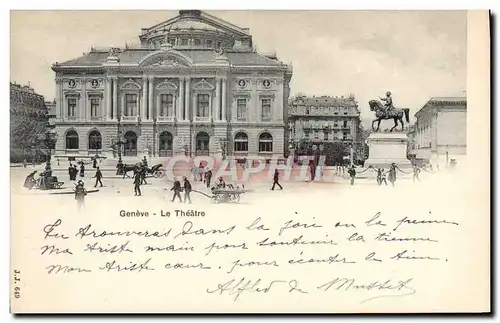 Genève - Le Théâtre
Tu trouveras dans la joie ou la peine
Ma triste main pour soutenir la tienne
Mon triste cœur pour écouter le tien.
Alfred de Musset
J.J. 649